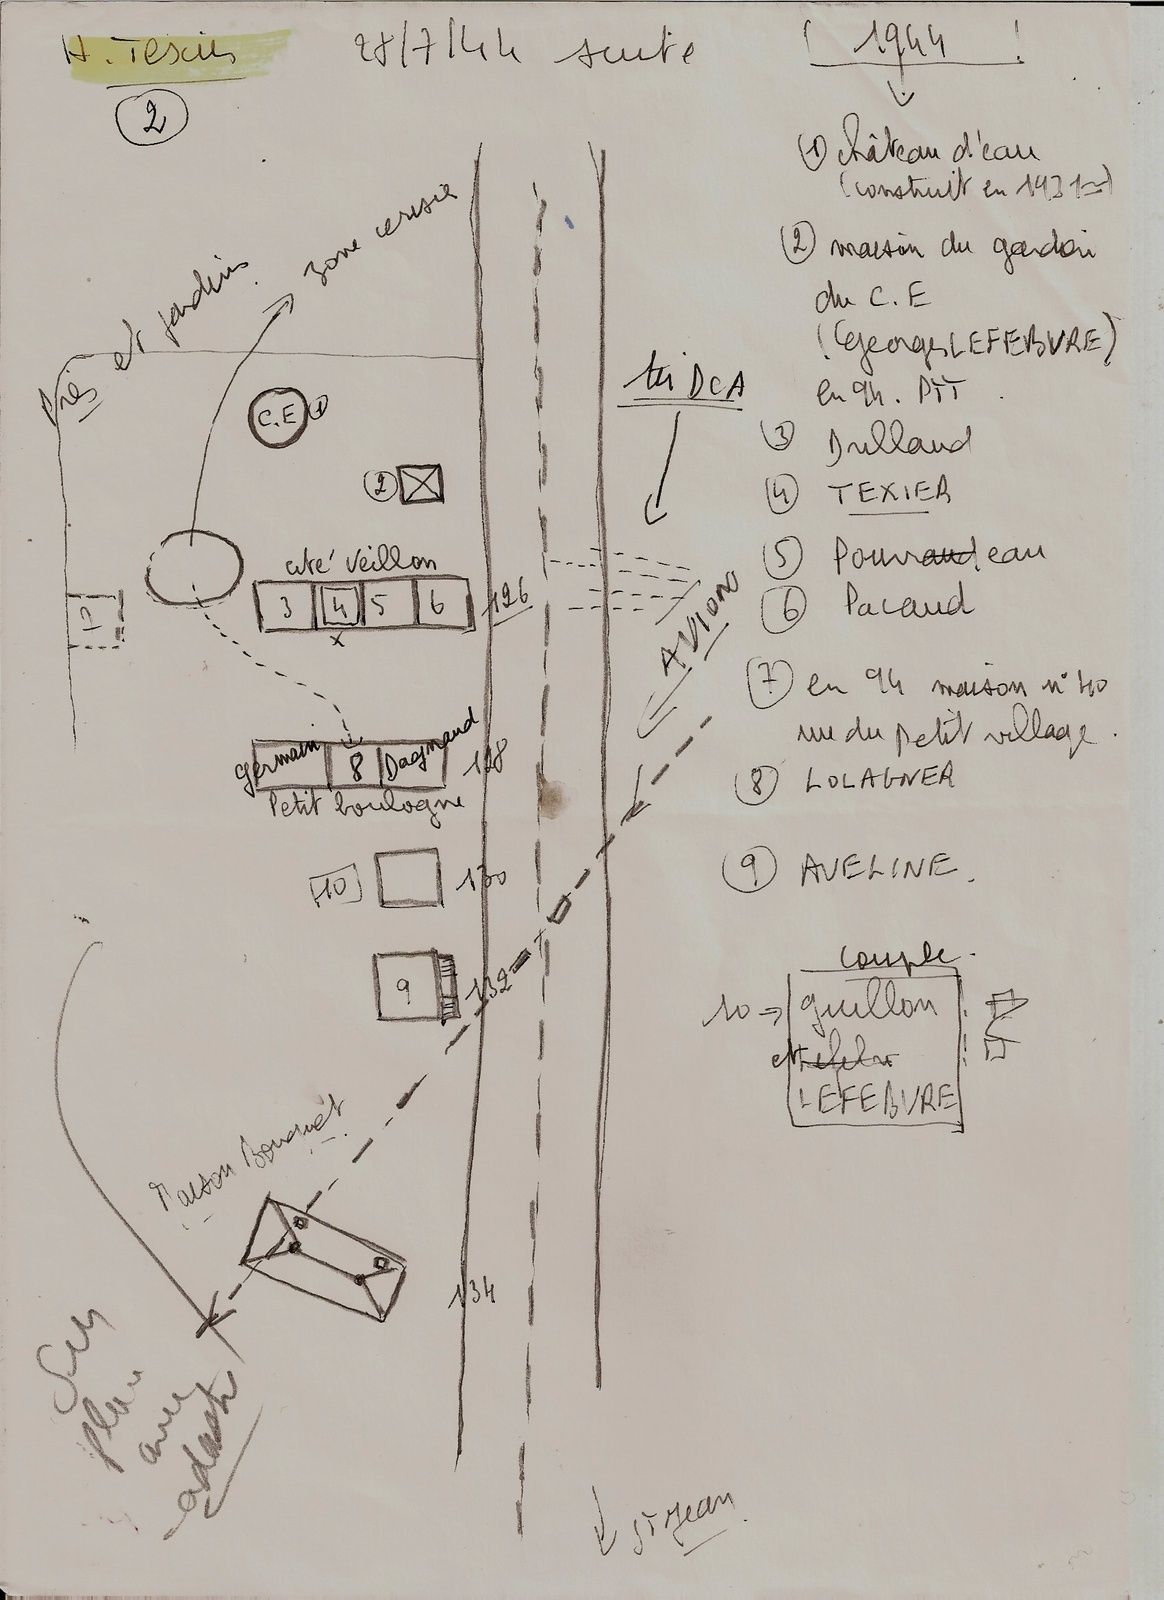 H. Texier 28/7/44 suite 1944 !
2
① château d'eau
(construit en 1931
② maison du gardien
du C.E
(Georges LEFEBVRE)
en 94. PTT
③ Drillaud
④ TEXIER
⑤ Pouvreau eau
⑥ Pacaud
⑦ en 94 maison n° 40
rue du petit village.
⑧ LOLAGNER
⑨ AVELINE.
couple.
10 ⇒ guillon
et
LEFEBVRE
Prés et jardins.
zone cerisié
C.E ①
②
tir DCA
cité Veillon
3 4 5 6 126
x
7
AVIONS
germain 8 Dagnaud 128
Petit boulogne
10 130
9 132
Maison Bouquet
134
Sur
plan
avec
St Jean